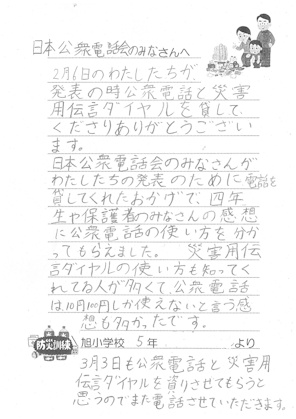 日本公衆電話会のみなさんへ
2月6日のわたしたちが、
発表の時公衆電話と災害
用伝言ダイヤルを貸して、
くださりありがとうござい
ます。
日本公衆電話会のみなさんが
わたしたちの発表のために電話を
貸してくれたおかげで、四年
生や保護者のみなさんの感想
に公衆電話の使い方を分か
ってもらえました。 災害用伝
言ダイヤルの使い方も知ってく
れてる人が多くて、公衆電話
は10円100円しか使えないと言う感
想も多かったです。
防災訓練
旭小学校 5年 より
3月3日も公衆電話と災害用
伝言ダイヤルを貸りさせてもらうと
思うのでまた電話させていただきます。